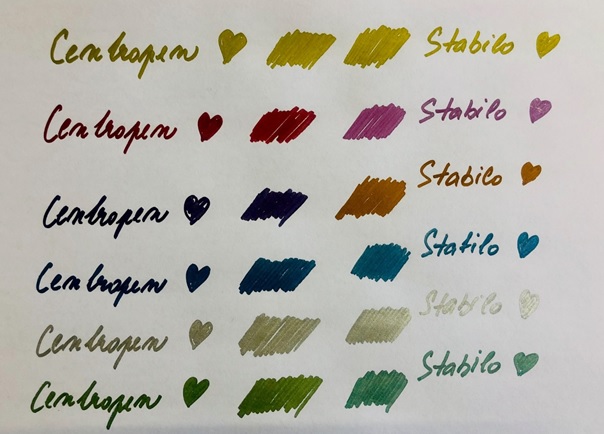 Centropen Stabilo
Centropen Stabilo
Centropen Stabilo
Centropen Stabilo
Centropen Stabilo
Centropen Stabilo